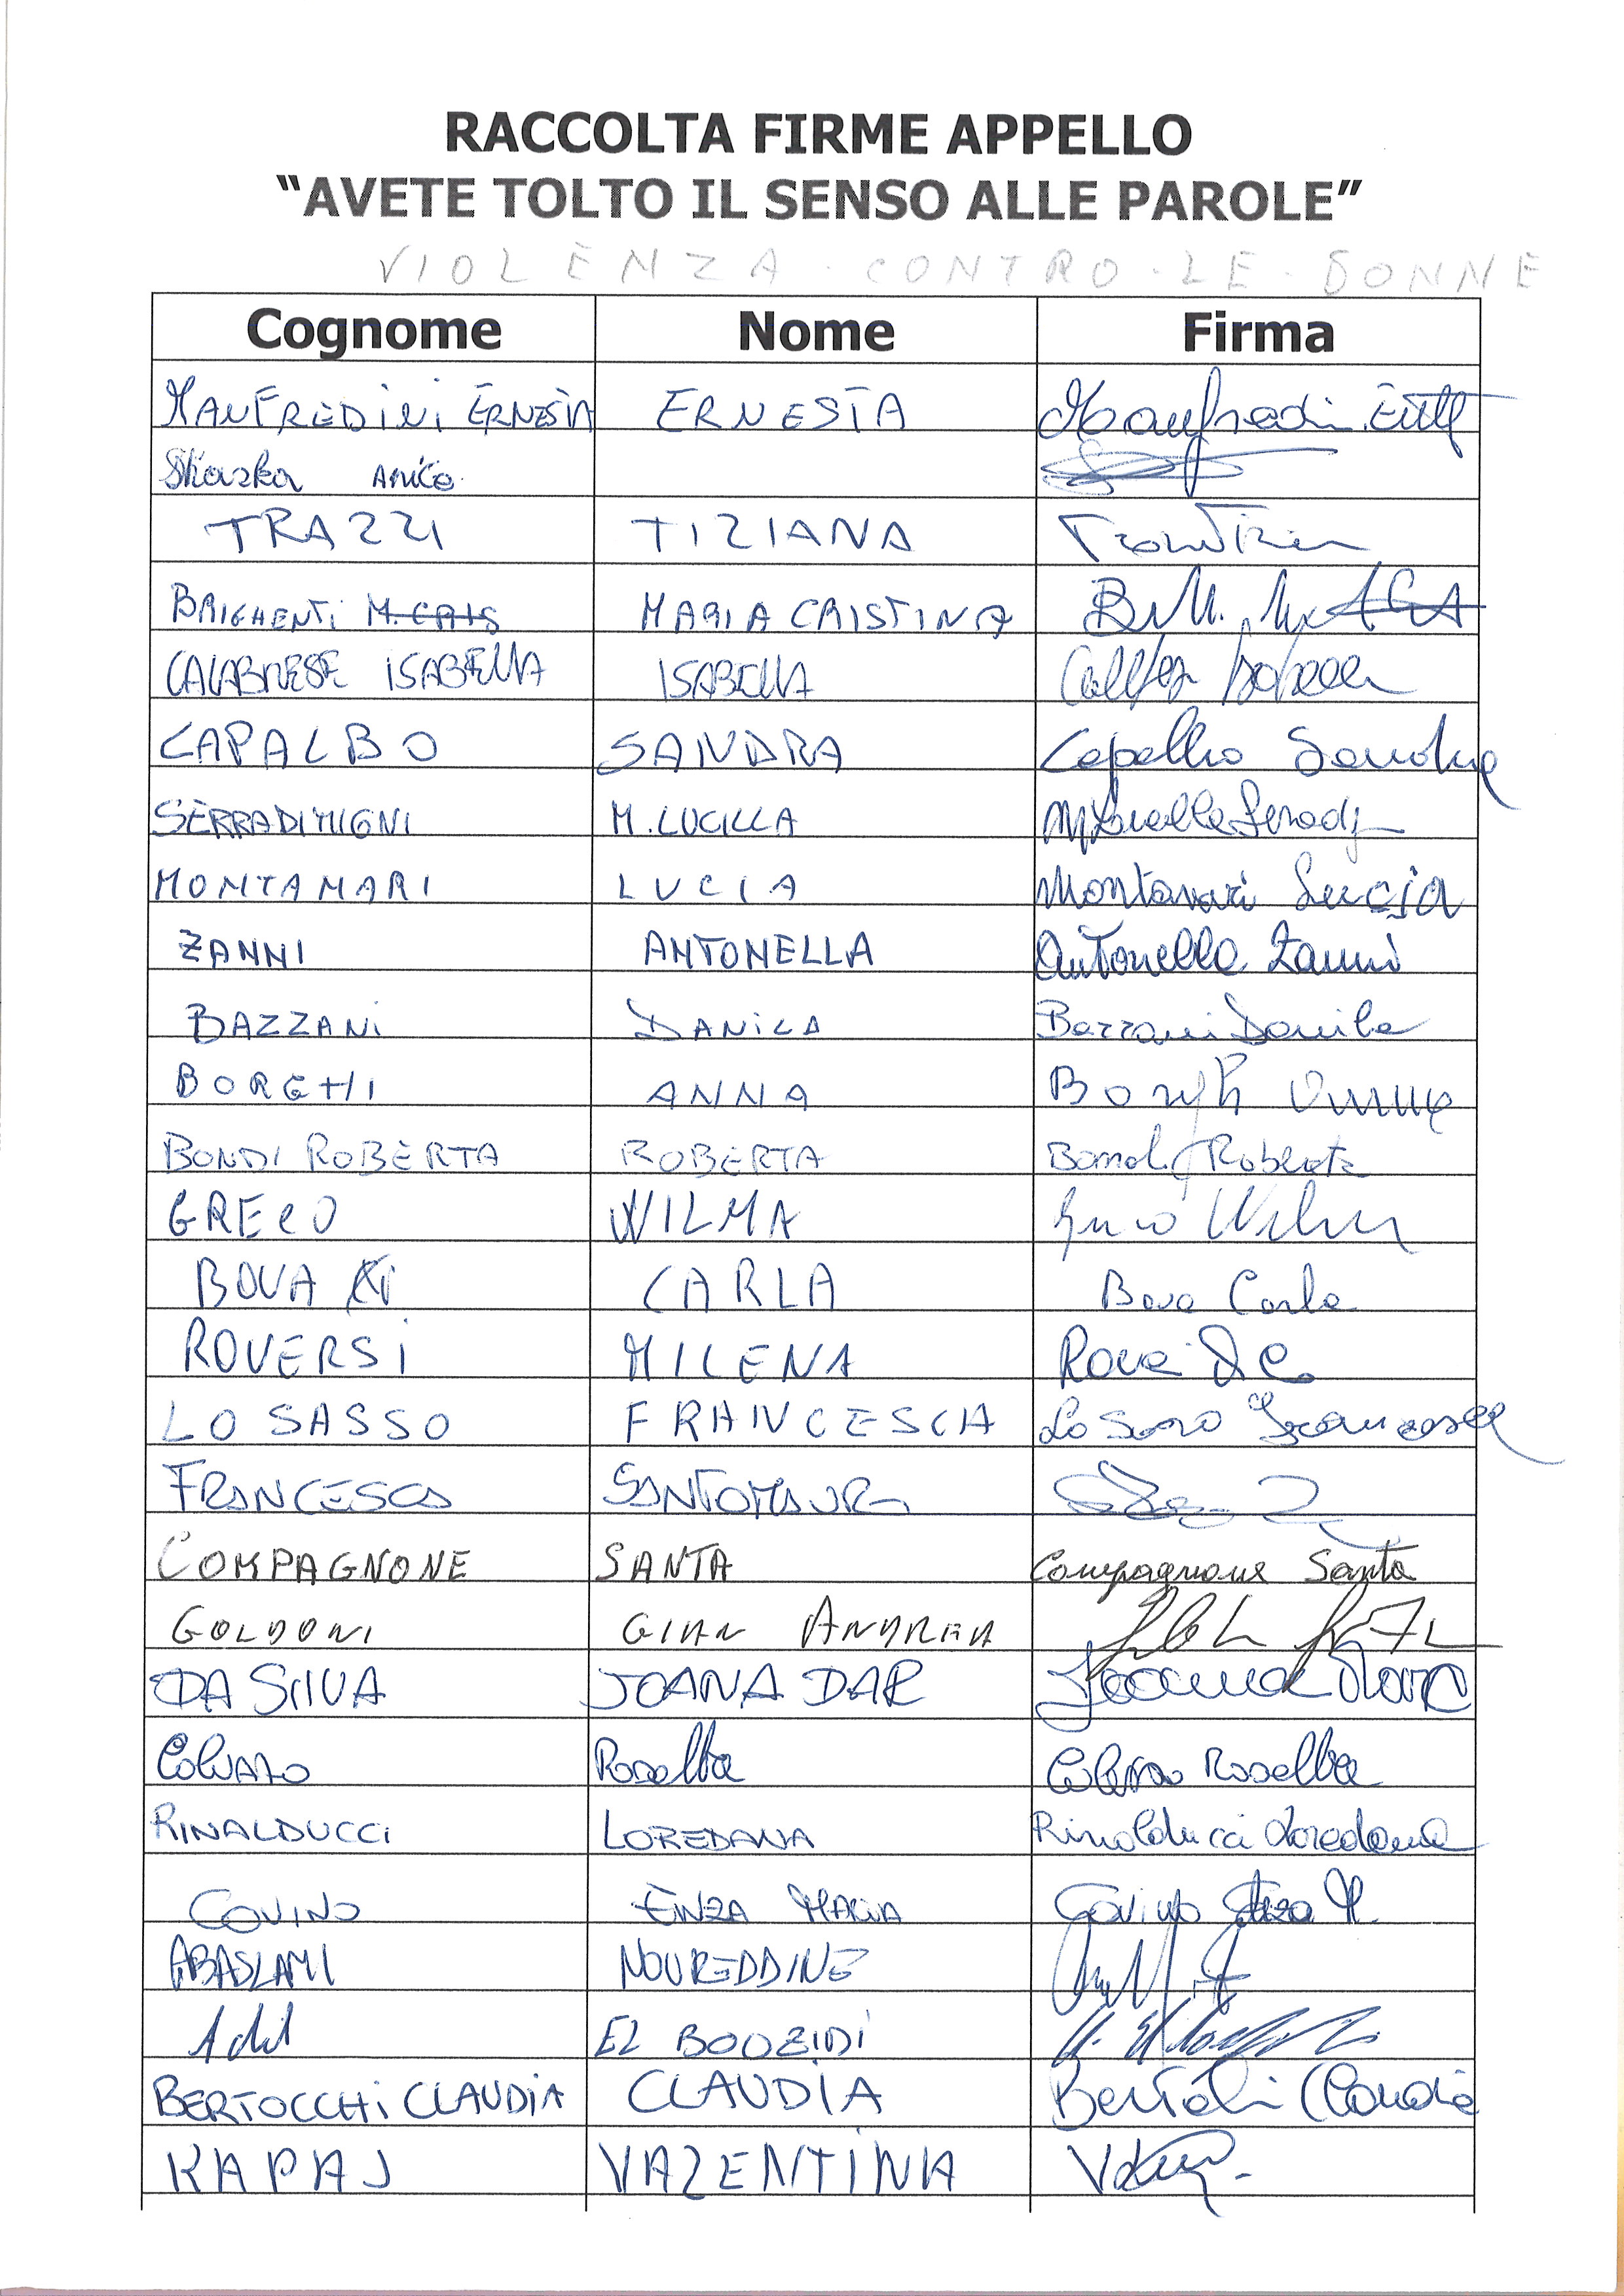 RACCOLTA FIRME APPELLO
"AVETE TOLTO IL SENSO ALLE PAROLE"
VIOLENZA CONTRO LE DONNE
Cognome Nome Firma
MANFREDINI ERNESTA ERNESTA Manfredini
TRAZZI TIZIANA
BRIGHENTI MARIA CRISTINA
CALABRESE ISABELLA ISABELLA
CAPALBO SANDRA Capalbo Sandra
SERRADIMIGNI M. LUCILLA
MONTANARI LUCIA Montanari Lucia
ZANNI ANTONELLA Antonella Zanni
BAZZANI DANILA Bazzani Danila
BORGHI ANNA Borghi Anna
BONDI ROBERTA ROBERTA Bondi Roberta
GRECO WILMA Greco Wilma
BOVA CARLA Bova Carla
ROVERSI MILENA
LO SASSO FRANCESCA Lo Sasso Francesca
FRANCESCO SANTOMAURO
COMPAGNONE SANTA Compagnone Santa
GOLDONI GIAN ANDREA
DA SILVA JOANA DAR Joana Darc
Rosalba Rosalba
RINALDUCCI LOREDANA Rinalducci Loredana
COVINO ENZA MARIA Covino Enza M.
NOUREDDINE
Adil EL BOUZIDI
BERTOCCHI CLAUDIA CLAUDIA Claudia
KAPAJ VALENTINA